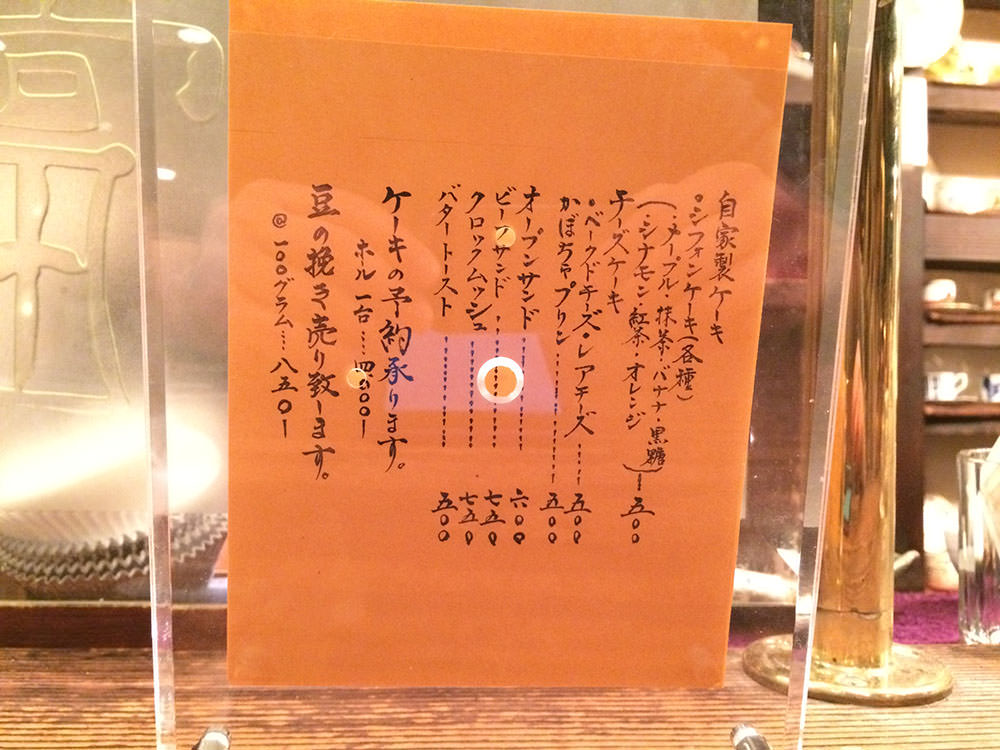 自家製ケーキ
・シフォンケーキ(各種)
(・メープル・抹茶・バナナ・黒糖
・シナモン・紅茶・オレンジ)―五〇〇
チーズケーキ
・ベークドチーズ・レアチーズ……五〇〇
かぼちゃプリン……五〇〇
オープンサンド……六〇〇
ビーフサンド……七五〇
クロックムッシュ……七五〇
バタートースト……五〇〇
ケーキの予約承ります。
ホール一台……四〇〇〇―
豆の挽き売り致します。
@一〇〇グラム……八五〇―